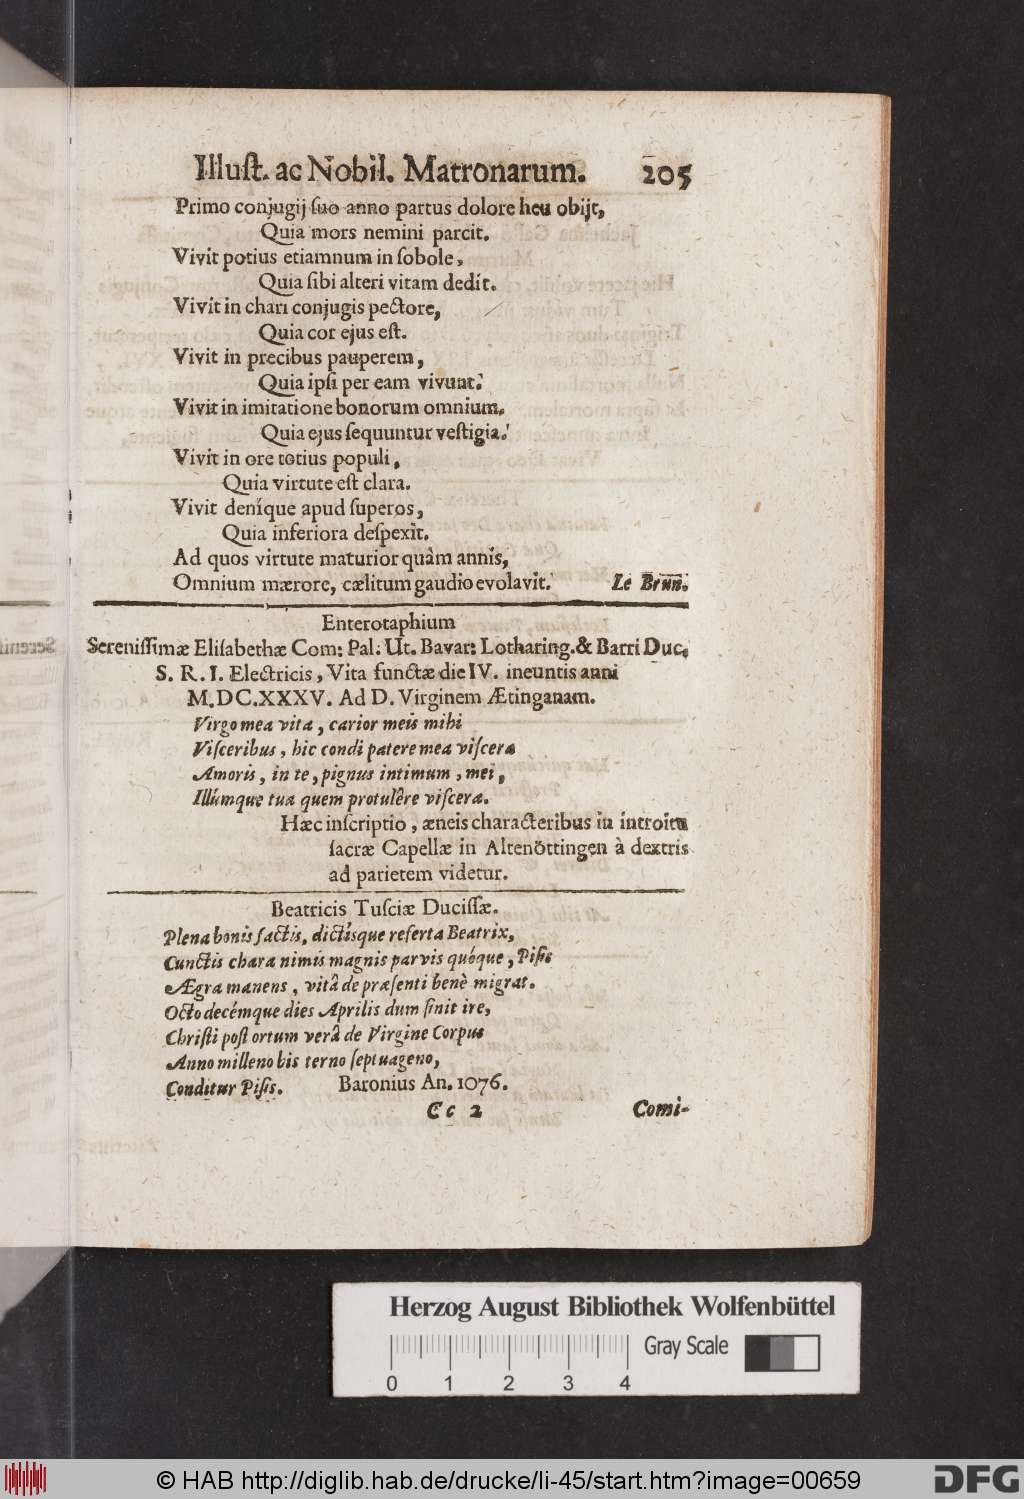 Illust. ac Nobil. Matronarum. 205
Primo conjugij ſuo anno partus dolore heu obijt,
Quia mors nemini parcit.
Vivit potius etiamnum in ſobole,
Quia ſibi alteri vitam dedit.
Vivit in chari conjugis pectore,
Quia cor ejus eſt.
Vivit in precibus pauperem,
Quia ipſi per eam vivunt.
Vivit in imitatione bonorum omnium.
Quia ejus ſequuntur veſtigia.
Vivit in ore totius populi,
Quia virtute eſt clara.
Vivit deníque apud ſuperos,
Quia inferiora deſpexit.
Ad quos virtute maturior quàm annis,
Omnium mærore, cælitum gaudio evolavit. Le Brun.
Enterotaphium
Sereniſſimæ Eliſabethæ Com: Pal: Ut. Bavar: Lotharing. & Barri Duc.
S. R. I. Electricis, Vita functæ die IV. ineuntis anni
M. DC. XXXV. Ad D. Virginem Ætinganam.
Virgo mea vita, carior meis mihi
Viſceribus, hic condi patere mea viſcera
Amoris, in te, pignus intimum, mei,
Illúmque tua quem protulêre viſcera.
Hæc inſcriptio, æneis characteribus in introitu
ſacræ Capellæ in Altenöttingen à dextris
ad parietem videtur.
Beatricis Tuſciæ Duciſſæ.
Plena bonis factis, dictísque referta Beatrix,
Cunctis chara nimis magnis parvis quóque, Piſis
Ægra manens, vitâ de præſenti bénè migrat.
Octo decémque dies Aprilis dum ſinit ire,
Chriſti poſt ortum verâ de Virgine Corpus
Anno milleno bis terno ſeptuageno,
Conditur Piſis. Baronius An. 1076.
Cc 2 Comi-
Herzog August Bibliothek Wolfenbüttel
Gray Scale
0 1 2 3 4
© HAB http://diglib.hab.de/drucke/li-45/start.htm?image=00659
DFG